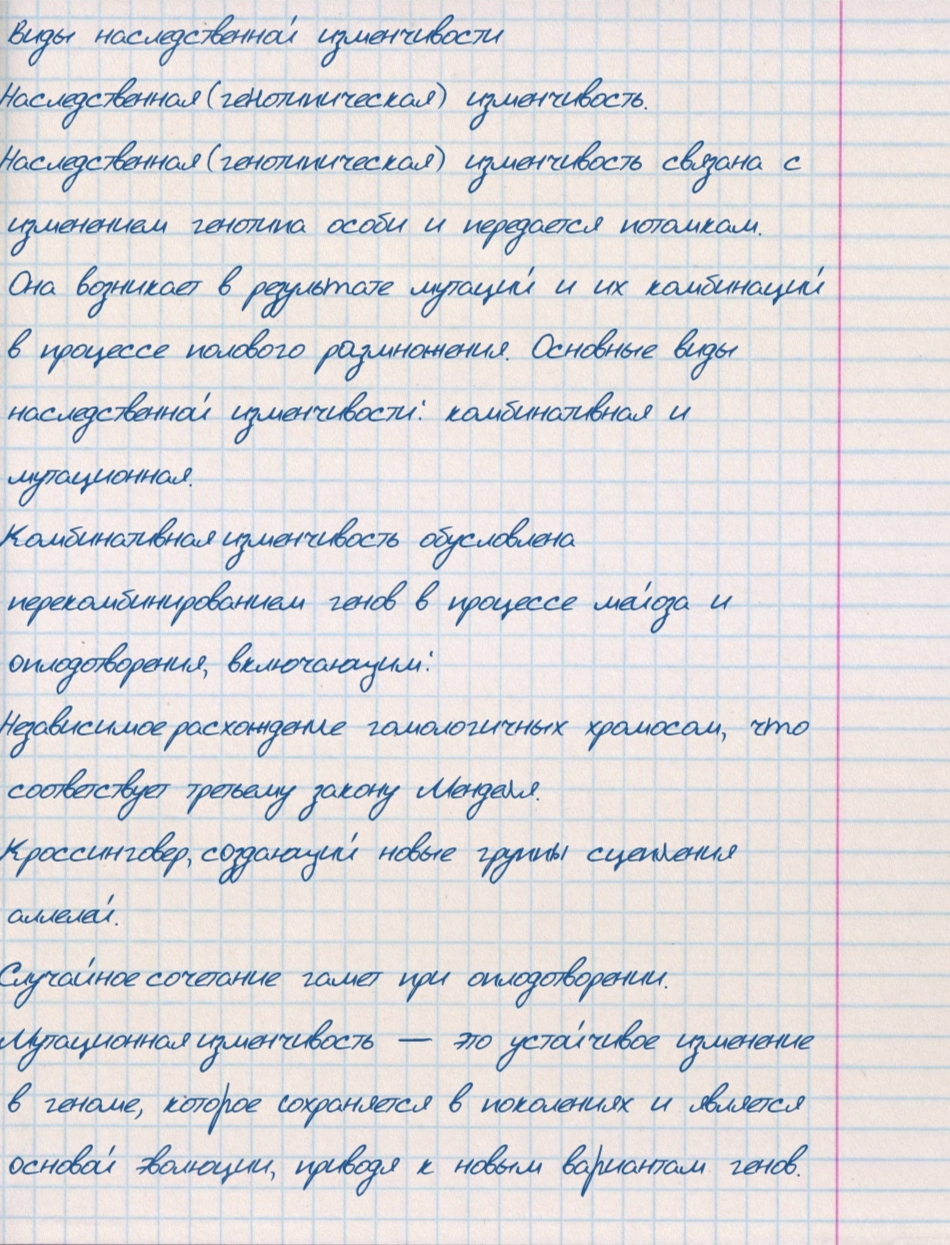 Виды наследственной изменчивости
Наследственная (генотипическая) изменчивость.
Наследственная (генотипическая) изменчивость связана с
изменением генотипа особи и передается потомкам.
Она возникает в результате мутаций и их комбинаций
в процессе полового размножения. Основные виды
наследственной изменчивости: комбинативная и
мутационная.
Комбинативная изменчивость обусловлена
перекомбинированием генов в процессе мейоза и
оплодотворения, включающим:
Независимое расхождение гомологичных хромосом, что
соответствует третьему закону Менделя.
Кроссинговер, создающий новые группы сцепления
аллелей.
Случайное сочетание гамет при оплодотворении.
Мутационная изменчивость — это устойчивое изменение
в геноме, которое сохраняется в поколениях и является
основой эволюции, приводя к новым вариантам генов.